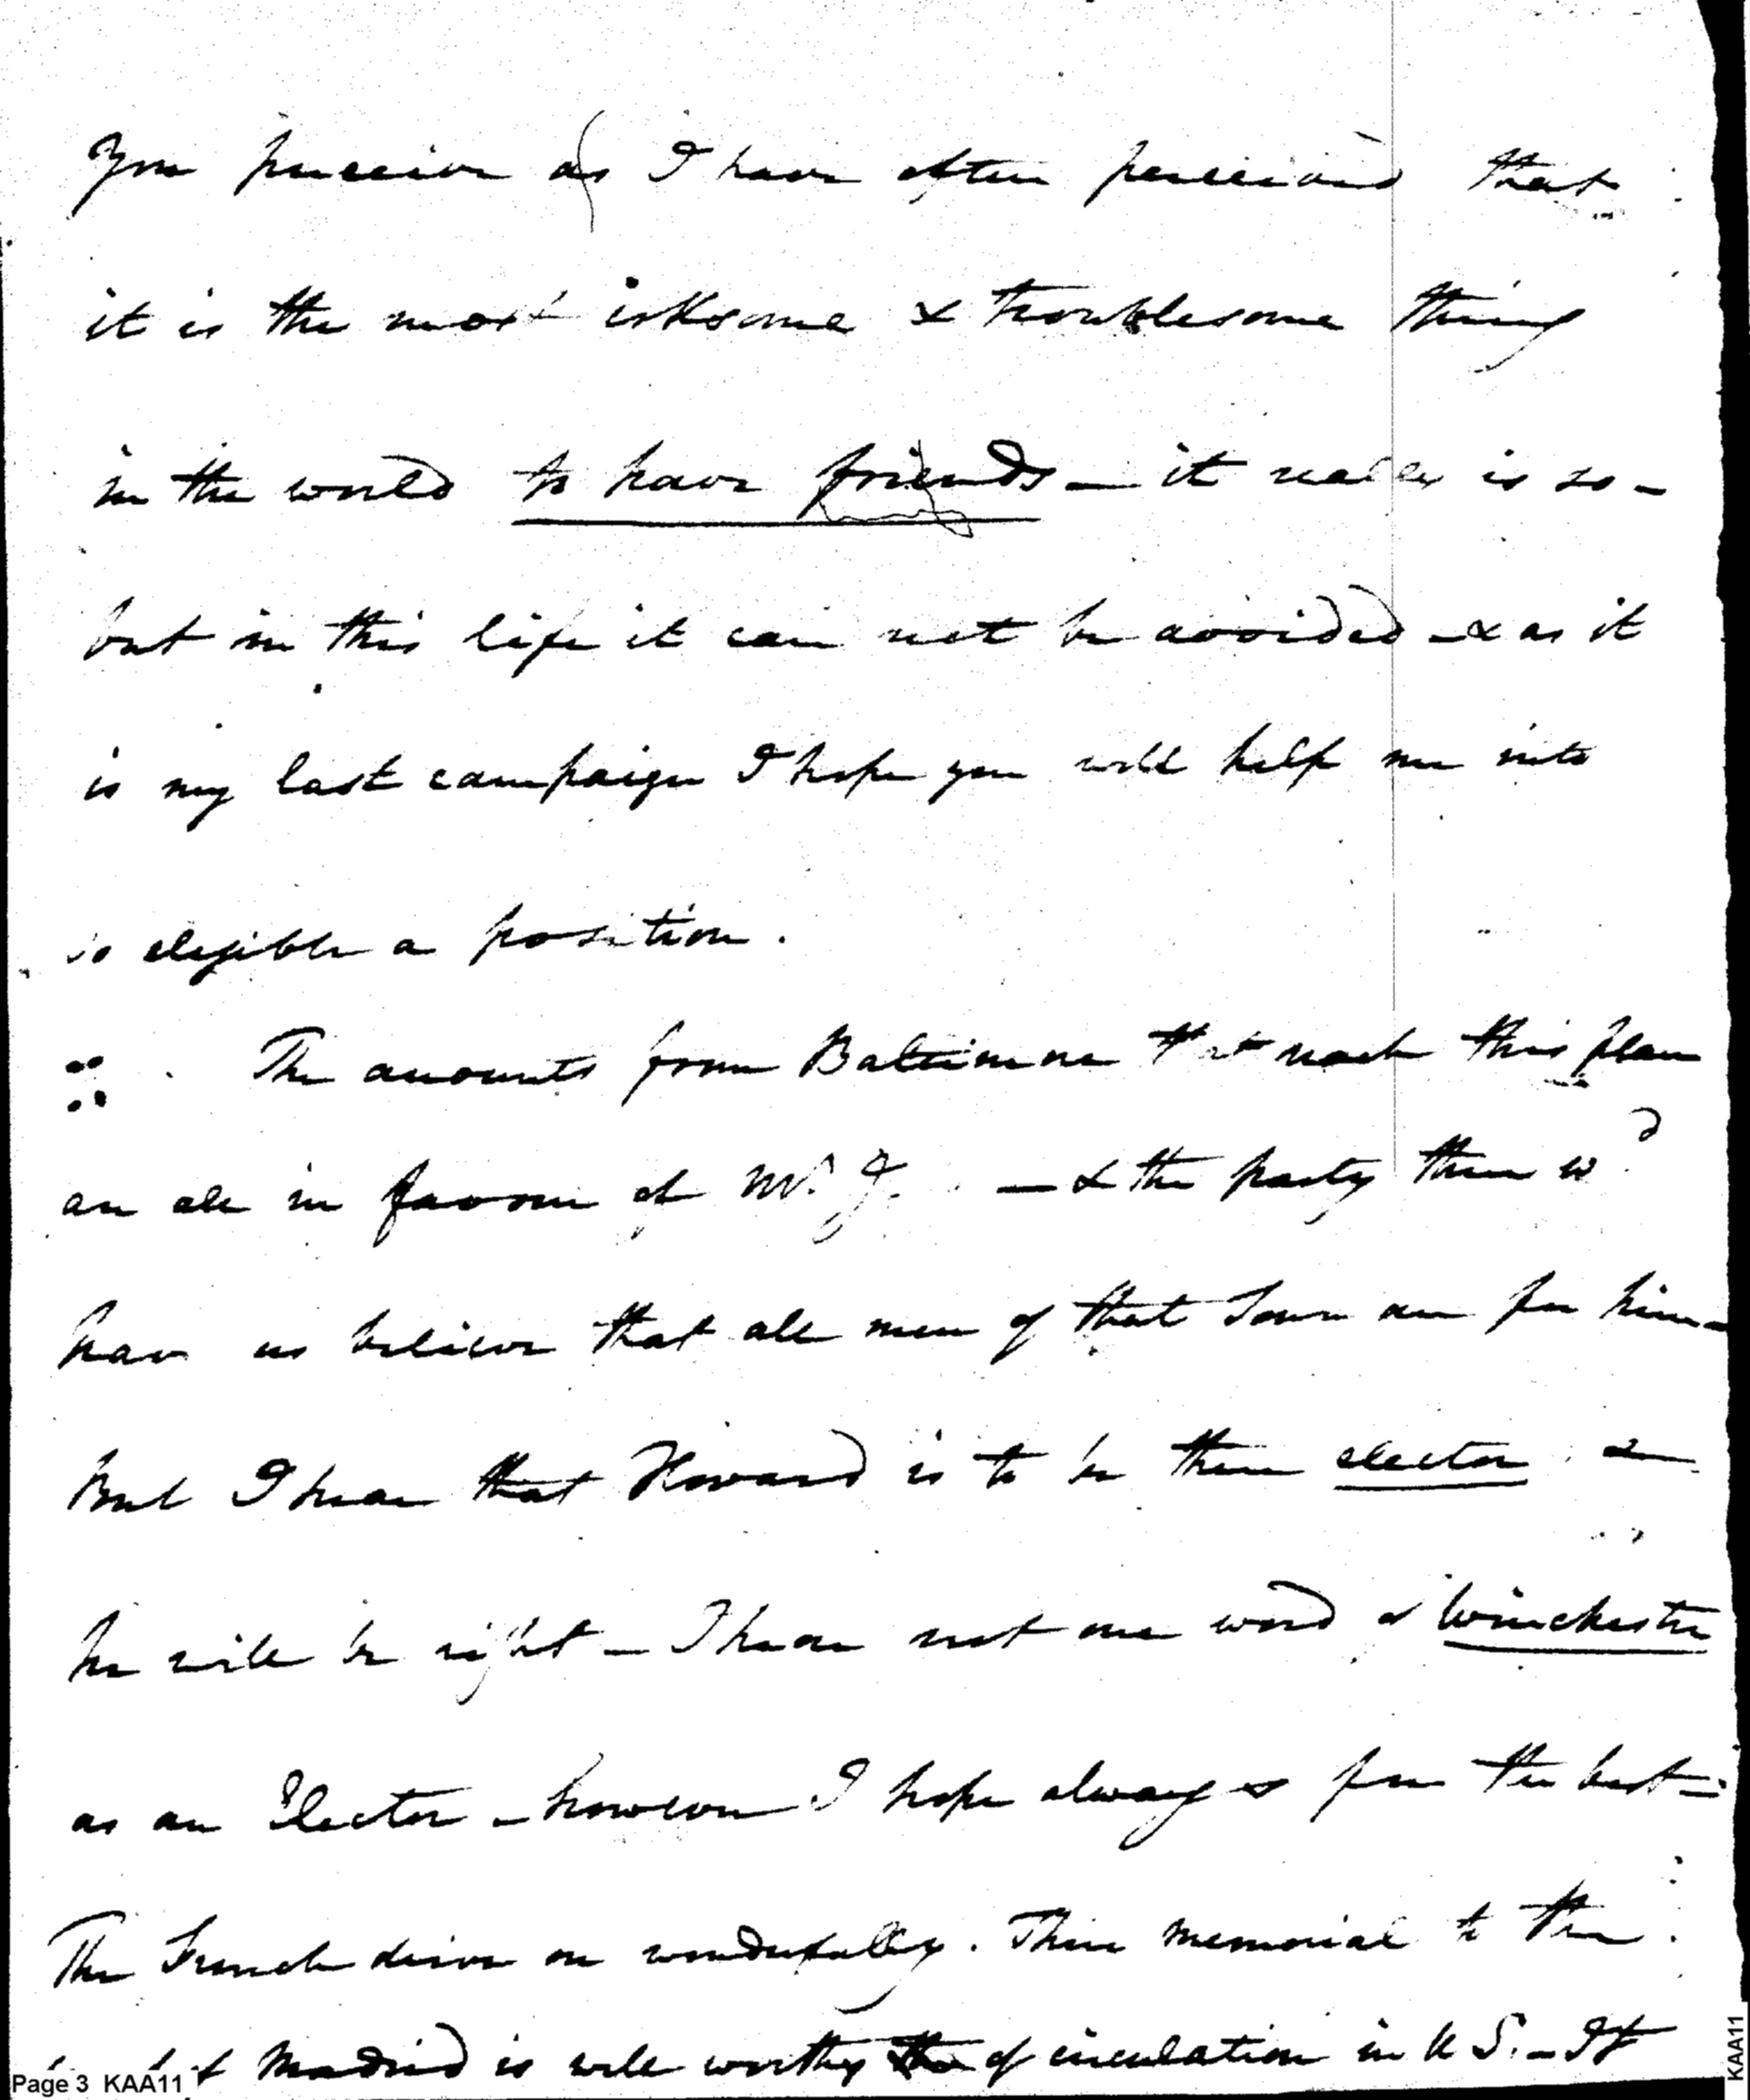 You perceive as I have often perceived that
it is the most irksome & troublesome thing
in the world to have friends — it really is so —
but in this life it can not be avoided — & as it
is my last campaign I hope you will help me into
so eligible a position.
The accounts from Baltimore that reach this place
are all in favour of Mr. J. — & the party there wd
have us believe that all men of that Town are for him —
But I hear that Howard is to be their elector &
he will be right — I hear not one word of Winchester
as an Elector — however I hope always for the best —
The French drive on wonderfully. Their memorial to the
of Madrid is well worthy of circulation in U S. — If
Page 3 KAA11
KAA11